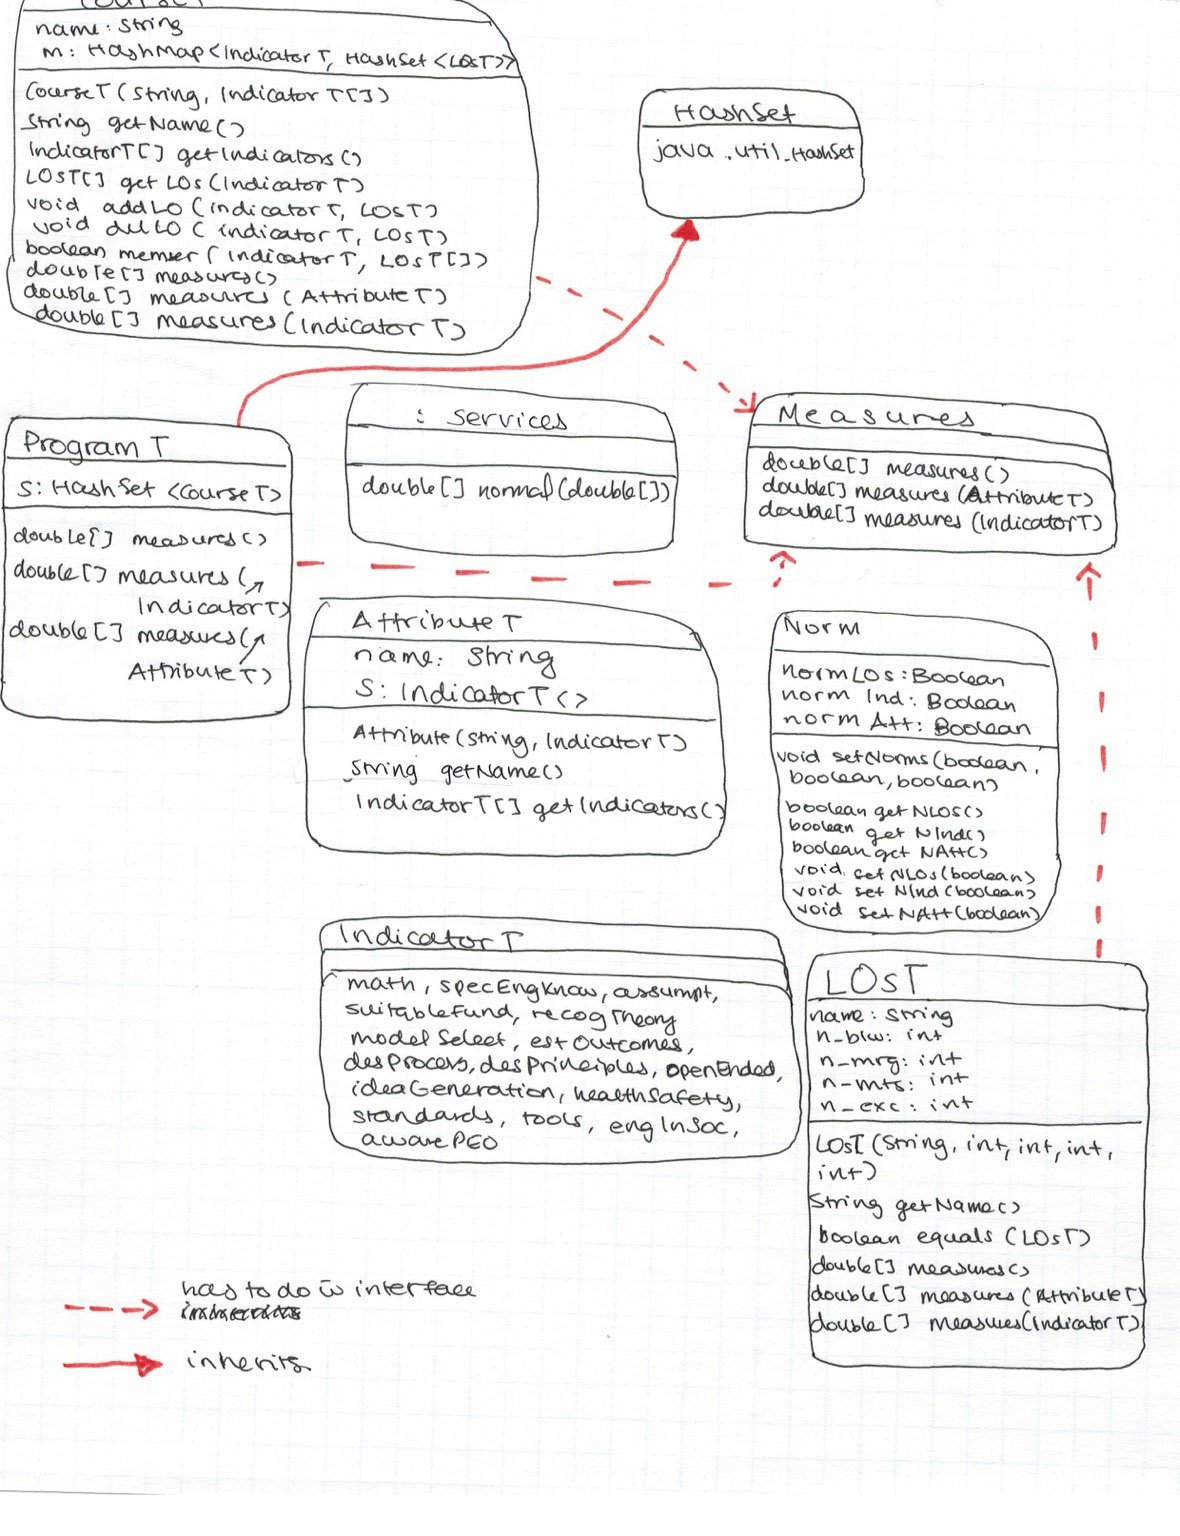 CourseT
name: String
m: HashMap<IndicatorT, HashSet<LOsT>>
CourseT(String, IndicatorT[])
String getName()
IndicatorT[] getIndicators()
LOsT[] getLOs(IndicatorT)
void addLO(indicatorT, LOsT)
void delLO(indicatorT, LOsT)
boolean memser(IndicatorT, LOsT[])
double[] measures()
double[] measures(AttributeT)
double[] measures(IndicatorT)
HashSet
java.util.HashSet
ProgramT
S: HashSet<CourseT>
double[] measures()
double[] measures(
IndicatorT)
double[] measures(
AttributeT)
: Services
double[] normal(double[])
Measures
double[] measures()
double[] measures(AttributeT)
double[] measures(IndicatorT)
AttributeT
name: String
S: IndicatorT<>
Attribute(String, IndicatorT)
String getName()
IndicatorT[] getIndicators()
Norm
normLOs: Boolean
norm Ind: Boolean
norm Att: Boolean
void setNorms(boolean,
boolean, boolean)
boolean get NLOs()
boolean get NInd()
boolean get NAtt()
void set NLOs(boolean)
void set NInd(boolean)
void set NAtt(boolean)
IndicatorT
math, specEngKnow, assumpt,
suitableFund, recogTheory
modelSelect, estOutcomes,
desProcess, desPrinciples, openEnded,
ideaGeneration, healthSafety,
standards, tools, engInSoc,
awarePEO
LOsT
name: String
n_blw: int
n_mrg: int
n_mts: int
n_exc: int
LOsT(String, int, int, int,
int)
String getName()
boolean equals(LOsT)
double[] measures()
double[] measures(AttributeT)
double[] measures(IndicatorT)
has to do w interface
inherits